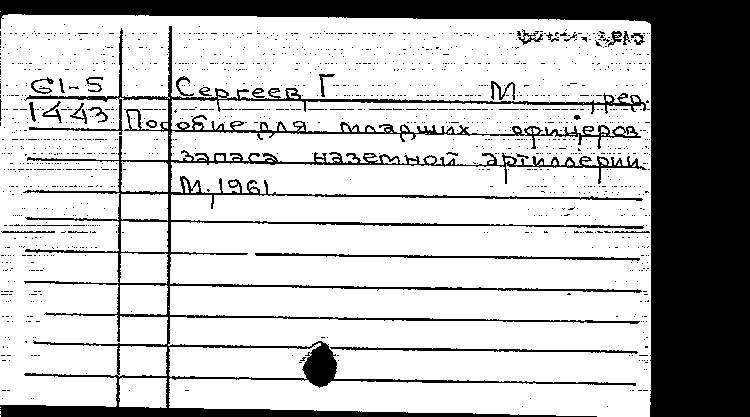 воен. дело
61-5 Сергеев, Г М , ред.
1443 Пособие для младших офицеров
запаса наземной артиллерии
М., 1961